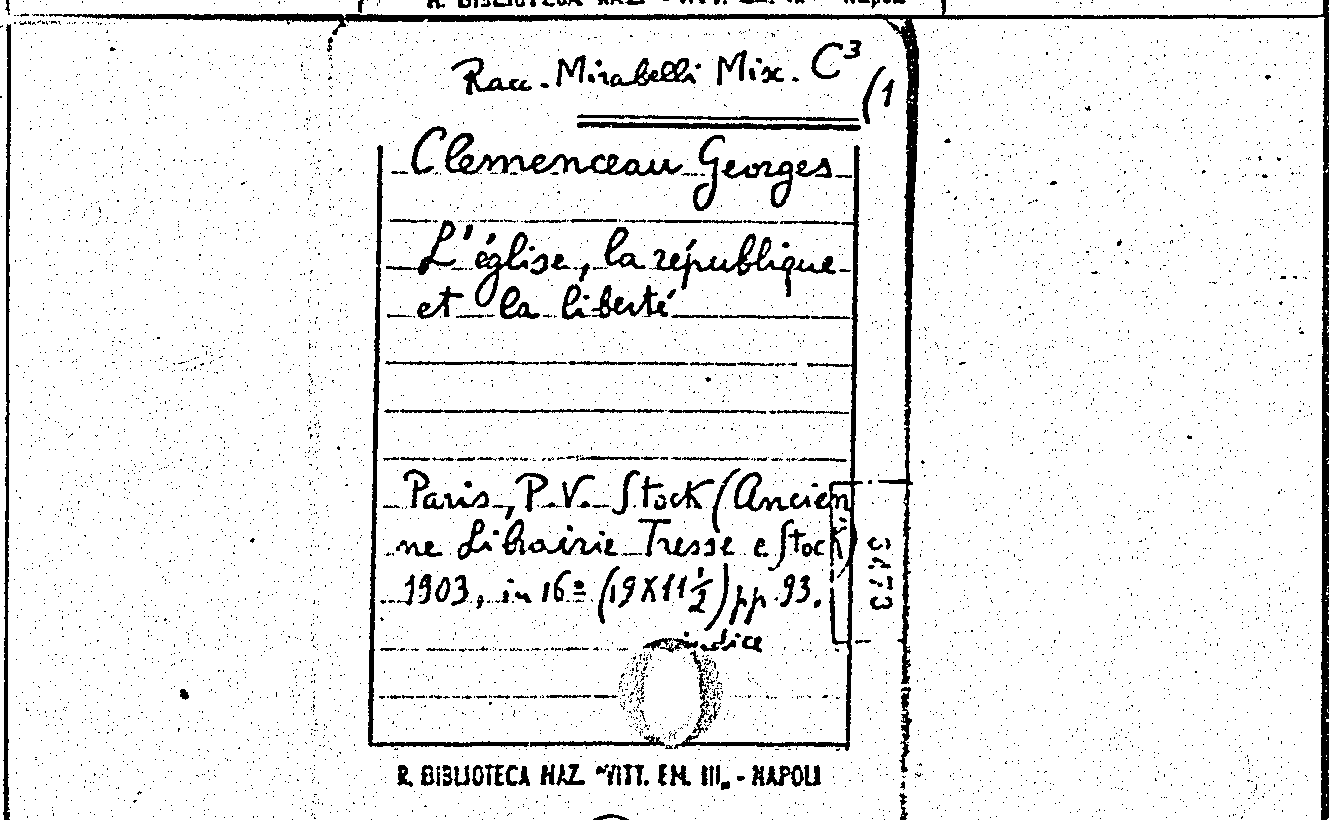 R. BIBLIOTECA NAZ. "VITT. EM. III" - NAPOLI
Racc. Mirabelli Misc. C³
(1
Clemenceau Georges
L'église, la république
et la liberté
Paris, P.V. Stock (Ancien
ne Librairie Tresse e Stock)
1903, in 16º (19X11½) pp. 93.
indice
3173
R. BIBLIOTECA NAZ. "VITT. EM. III„ - NAPOLI